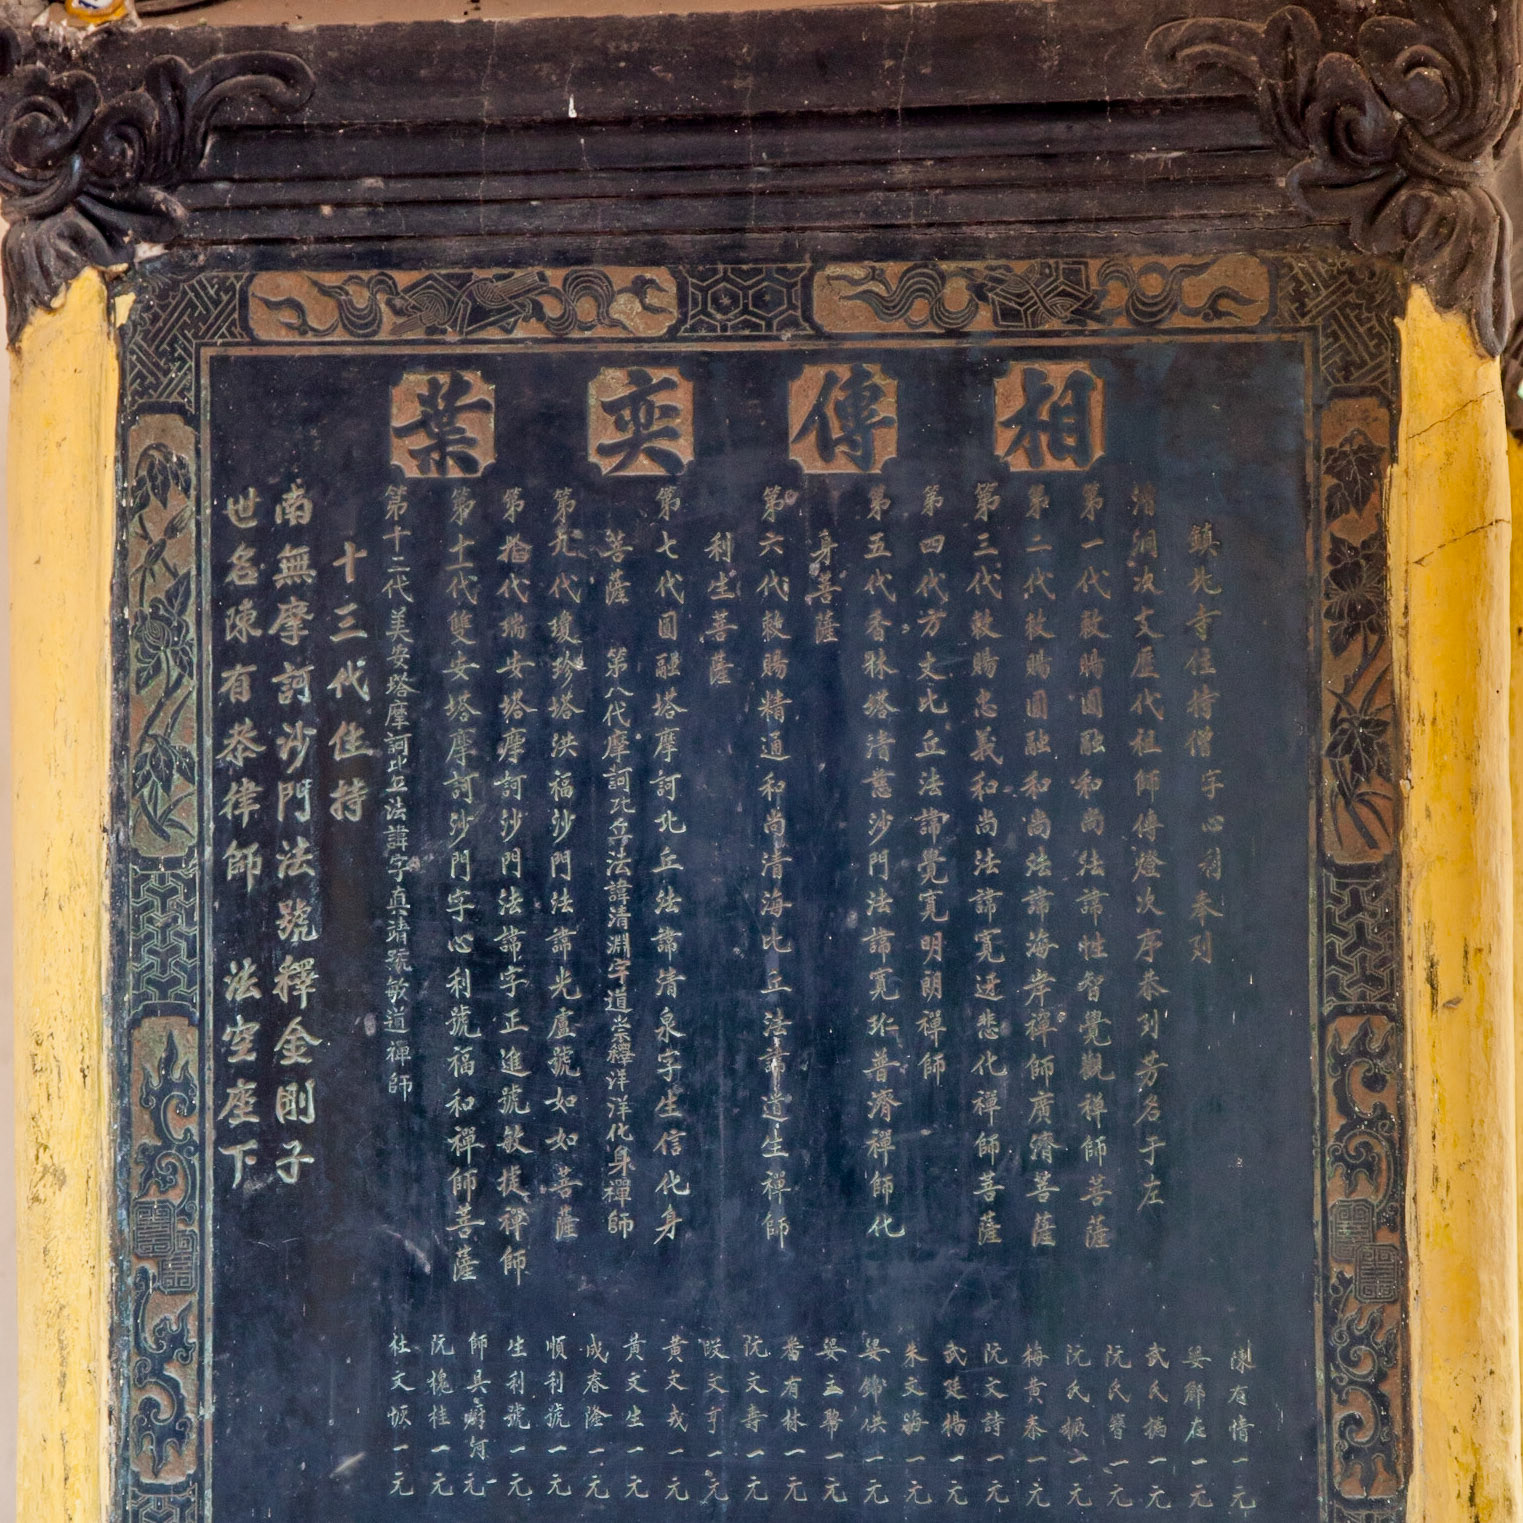 相傳奕葉
鎮北寺住持僧字心利奉列
清洞次文歷代祖師傳燈次序恭列芳名于左
第一代敕賜圓融和尚法諱性智覺觀禪師菩薩
第二代敕賜圓融和尚法諱海岸禪師廣濟菩薩
第三代敕賜忠義和尚法諱寬迓悲化禪師菩薩
第四代方丈比丘法諱覺寬明朗禪師
第五代香林塔清慈沙門法諱寬珎普濟禪師化
身菩薩
第六代敕賜精通和尚清海比丘法諱道生禪師
利生菩薩
第七代圓融塔摩訶比丘法諱清泉字生信化身
菩薩 第八代摩訶比丘法諱清淵字道崇釋洋洋化身禪師
第九代瓊珍塔洪福沙門法諱光廬號如如菩薩
第拾代瑞安塔摩訶沙門法諱字正進號敏捷禪師
第十一代雙安塔摩訶沙門字心利號福和禪師菩薩
第十二代美安塔摩訶比丘法諱字真靖號敏道禪師
十三代住持
南無摩訶沙門法號釋金剛子
世名陳有恭律師 法空座下
陳有情一元
武氏 一元
阮氏 一元
阮氏 元
梅黃泰一元
阮文詩一元
武廷楊一元
朱文海一元
潘有林一元
阮文壽一元
黃文戎一元
黃文生一元
成春隆一元
順利號一元
生利號一元
阮槐桂一元
杜文 一元